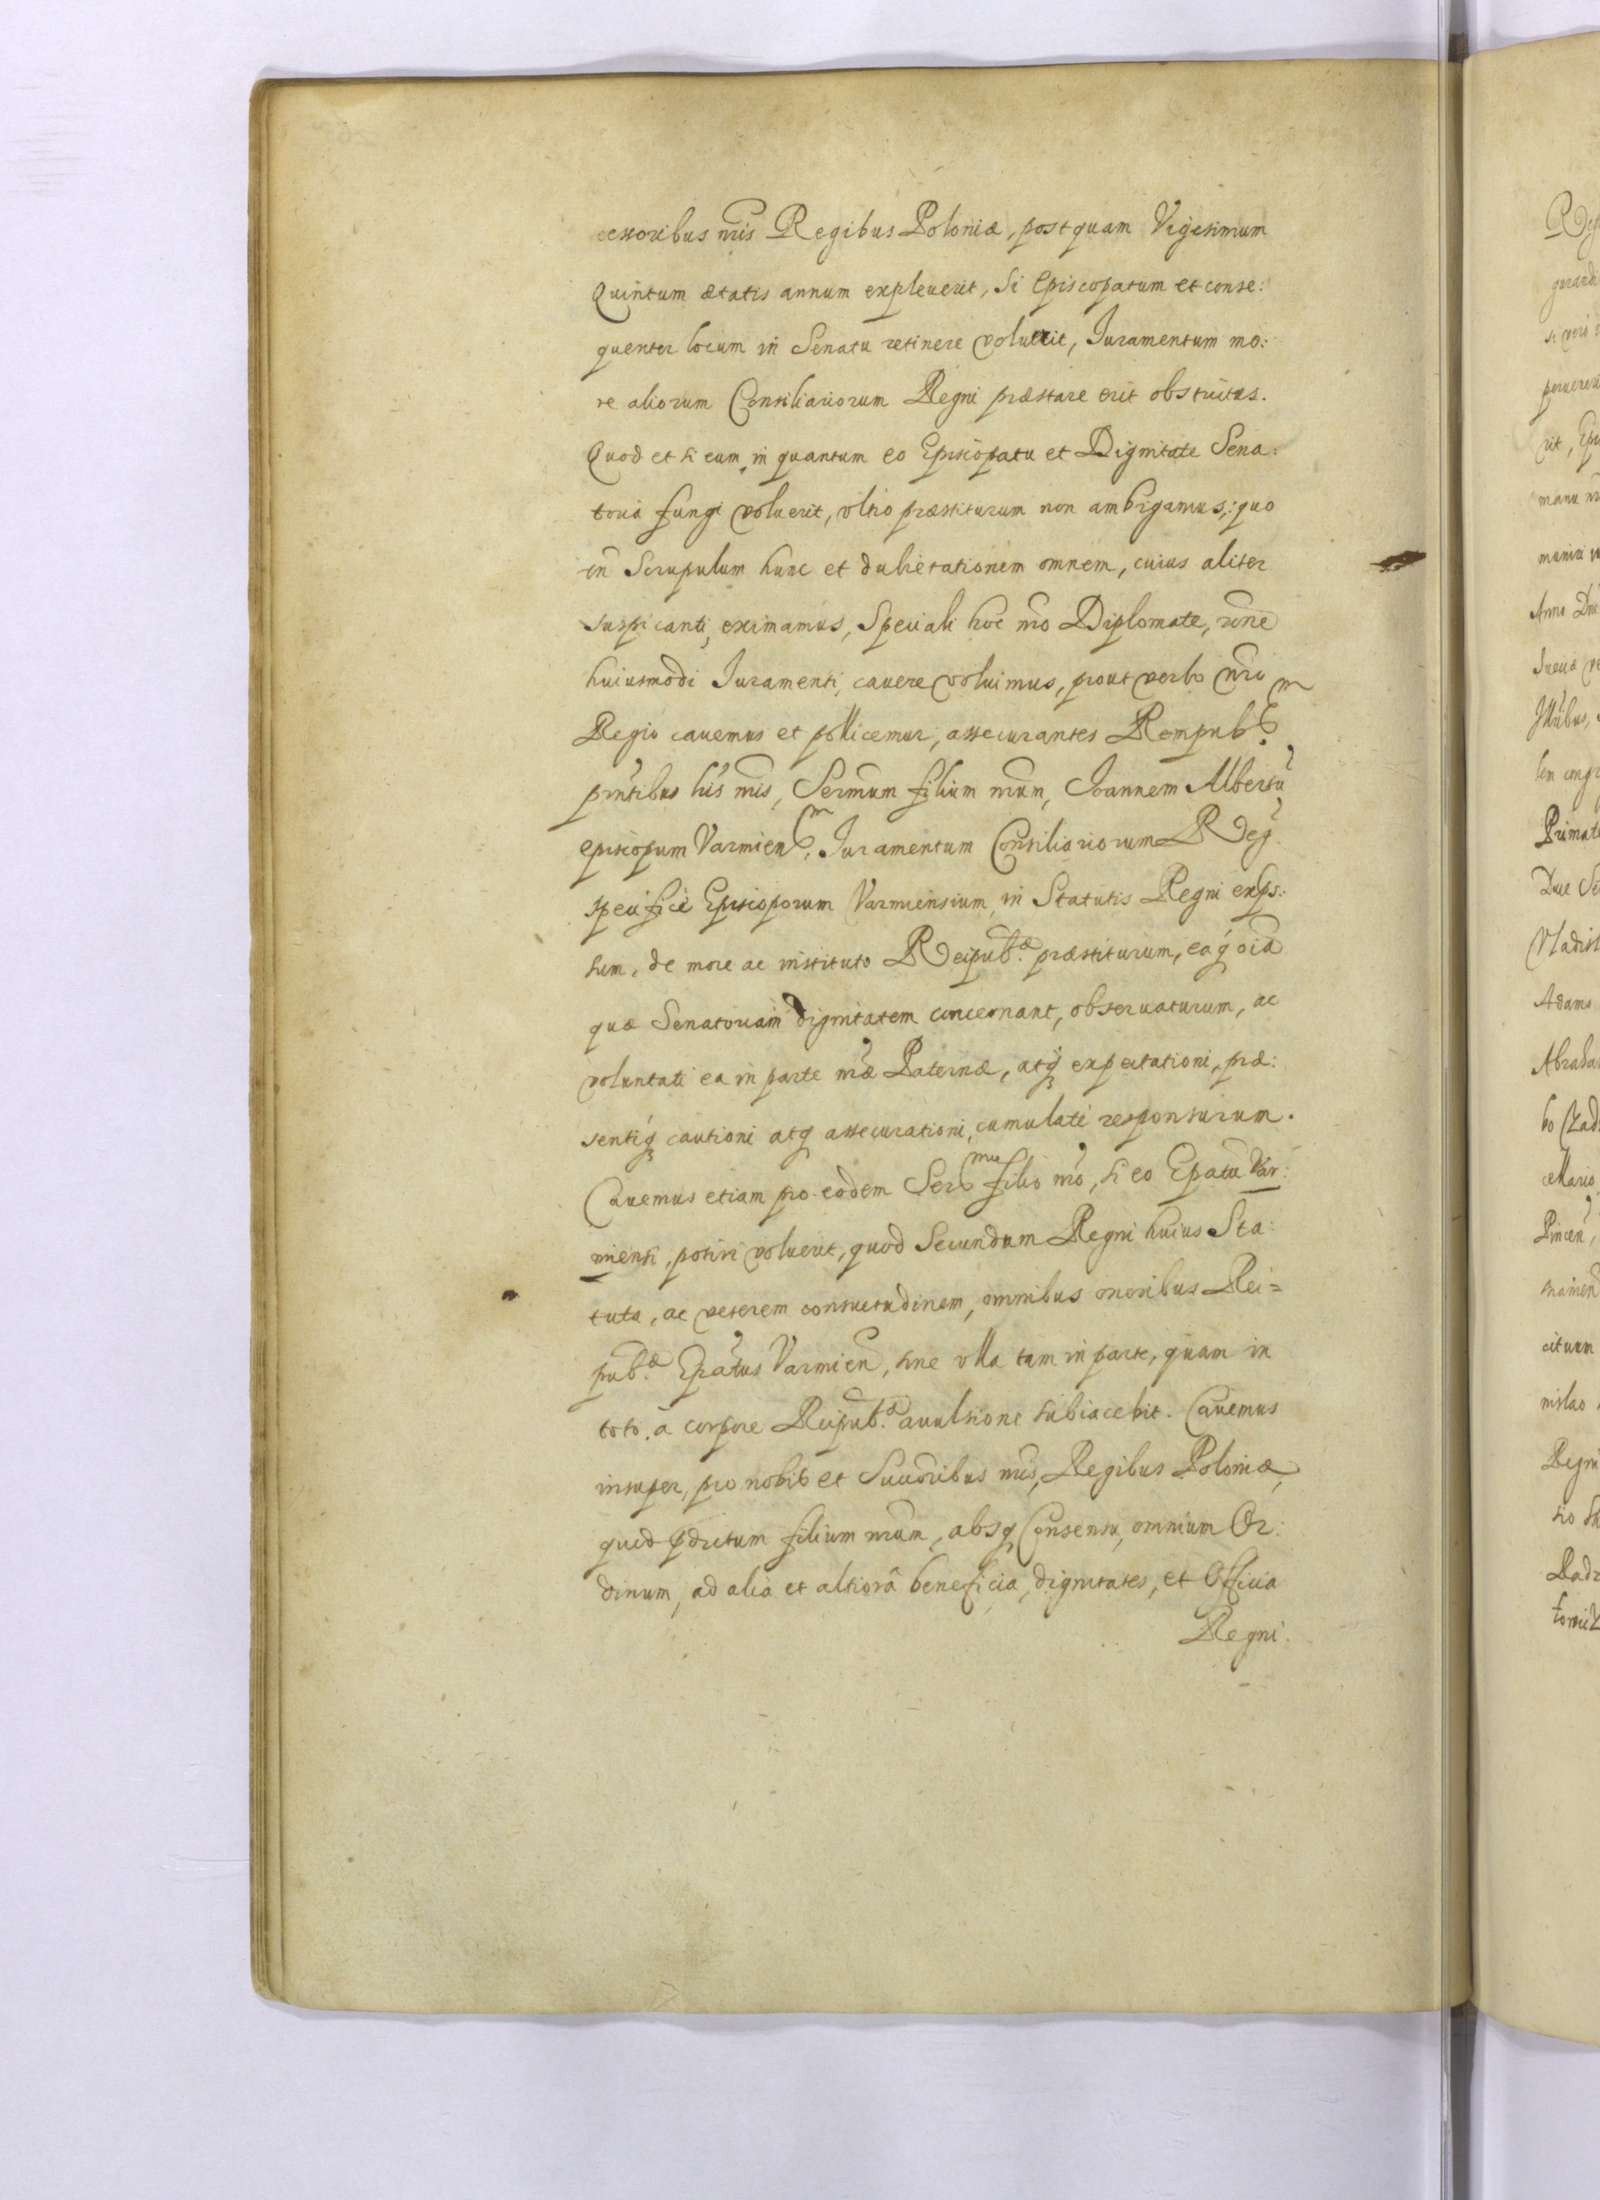 cessoribus nr̃is Regibus Poloniæ, postquam Vigesimum
Quintum ætatis annum expleuerit, Si Episcopatum et conse:
quenter locum in Senatu retinere voluerit, Juramentum mo:
re aliorum Consiliariorum Regni præstare erit obstrictus.
Quod et si eum, in quantum eo Episcopatu et Dignitate Sena:
toria fungi voluerit, vltro præstiturum non ambigamus, quo
tñ Scrupulum hunc et dubietationem omnem, cuius aliter
suspicanti, eximamus, Speciali hoc nr̃o Diplomate, rõne
huiusmodi Juramenti, cauere voluimus, prout verbo nr̃o
Regio cauemus et pollicemur, assecurantes Rempub.m
pr̃ntibus lr̃is nr̃is, Serm̃um filium nr̃um, Joannem Albertũ
episcopum Varmien.m Juramentum Consiliariorum Reg̃
specificè Episcoporum Varmiensium, in Statutis Regni expr̃s:
sum, de more ac instituto Reipub.æ præstiturum, eaq́ oĩa
quæ Senatoriam dignitatem concernant, obseruaturum, ac
voluntati ea in parte nr̃æ Paternæ, atq́ꝫ expectationi, præ:
sentiq́ꝫ cautioni atq́ assecurationi, cumulatè responsurum.
Cauemus etiam pro eodem Ser.mo filio nr̃o, si eo Ep̃atu Var:
miensi, potiri voluerit, quod Secundum Regni huius Sta:
tuta, ac veterem consuetudinem, omnibus oneribus Rei=
pub.æ Ep̃atus Varmieñ, sine vlla tam in parte, quam in
toto, à corpore Reipub.æ auulsione subiacebit. Cauemus
insuper, pro nobis et Succ̃oribus nr̃is, Regibus Poloniæ,
quod p̃dictum filium nr̃um, absq́ Consensu, omnium Or:
dinum, ad alia et altiora beneficia, dignitates, et Officia
Regni.